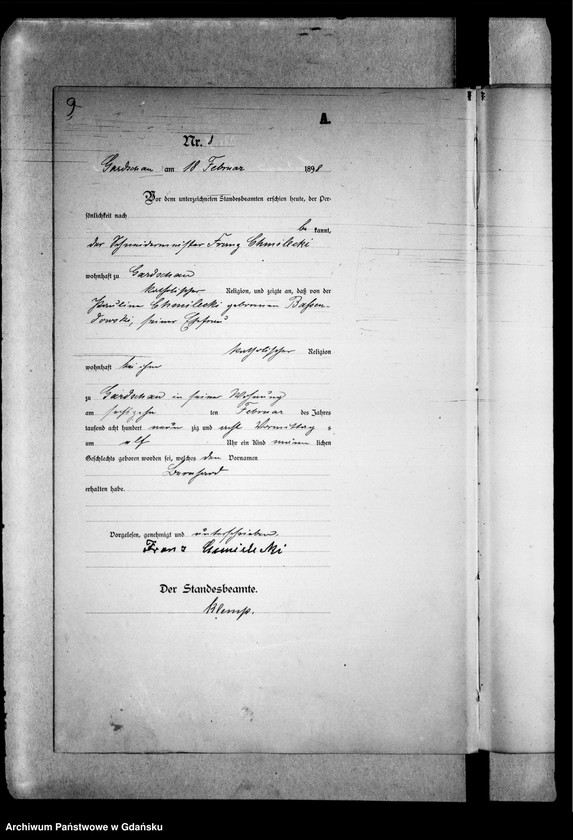 9
A.
Nr. 1
Gardschau am 18 Februar 1898
Vor dem unterzeichneten Standesbeamten erschien heute, der Per-
sönlichkeit nach
be kannt,
der Schneidermeister Franz Chmilecki
wohnhaft zu Gardschau
katholischer Religion, und zeigte an, daß von der
Pauline Chmilecki geborenen
seiner Ehefrau
katholischer Religion
wohnhaft bei ihm
zu Gardschau in seiner Wohnung
am sechszehn ten Februar des Jahres
tausend acht hundert neun zig und acht Vormittag s
um elf Uhr ein Kind männ lichen
Geschlechts geboren worden sei, welches den Vornamen
Bernhard
erhalten habe.
Vorgelesen, genehmigt und unterschrieben.
Franz Chmielecki
Der Standesbeamte.
Klemp.
Archiwum Państwowe w Gdańsku